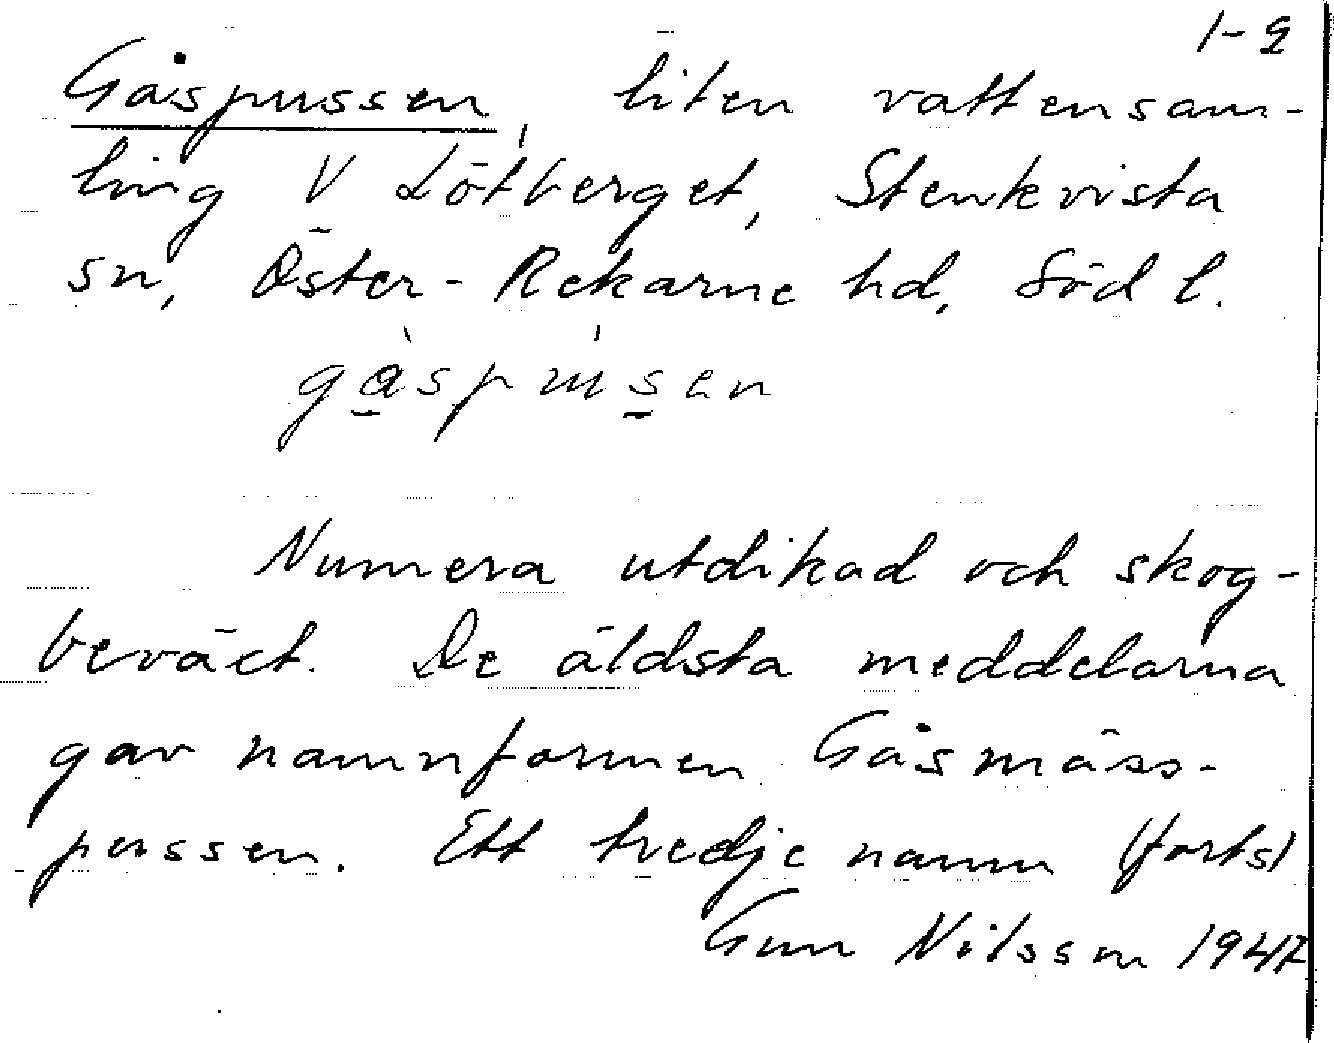 1-2
Gåspussen, liten vattensam-
ling V Lötberget, Stenkvista
sn, Öster-Rekarne hd, Söd l.
Numera utdikad och skog-
beväct. De äldsta meddelarna
gav namnformen Gåsmäss-
pussen. Ett tredje namn (forts)
Gun Nilsson 1947